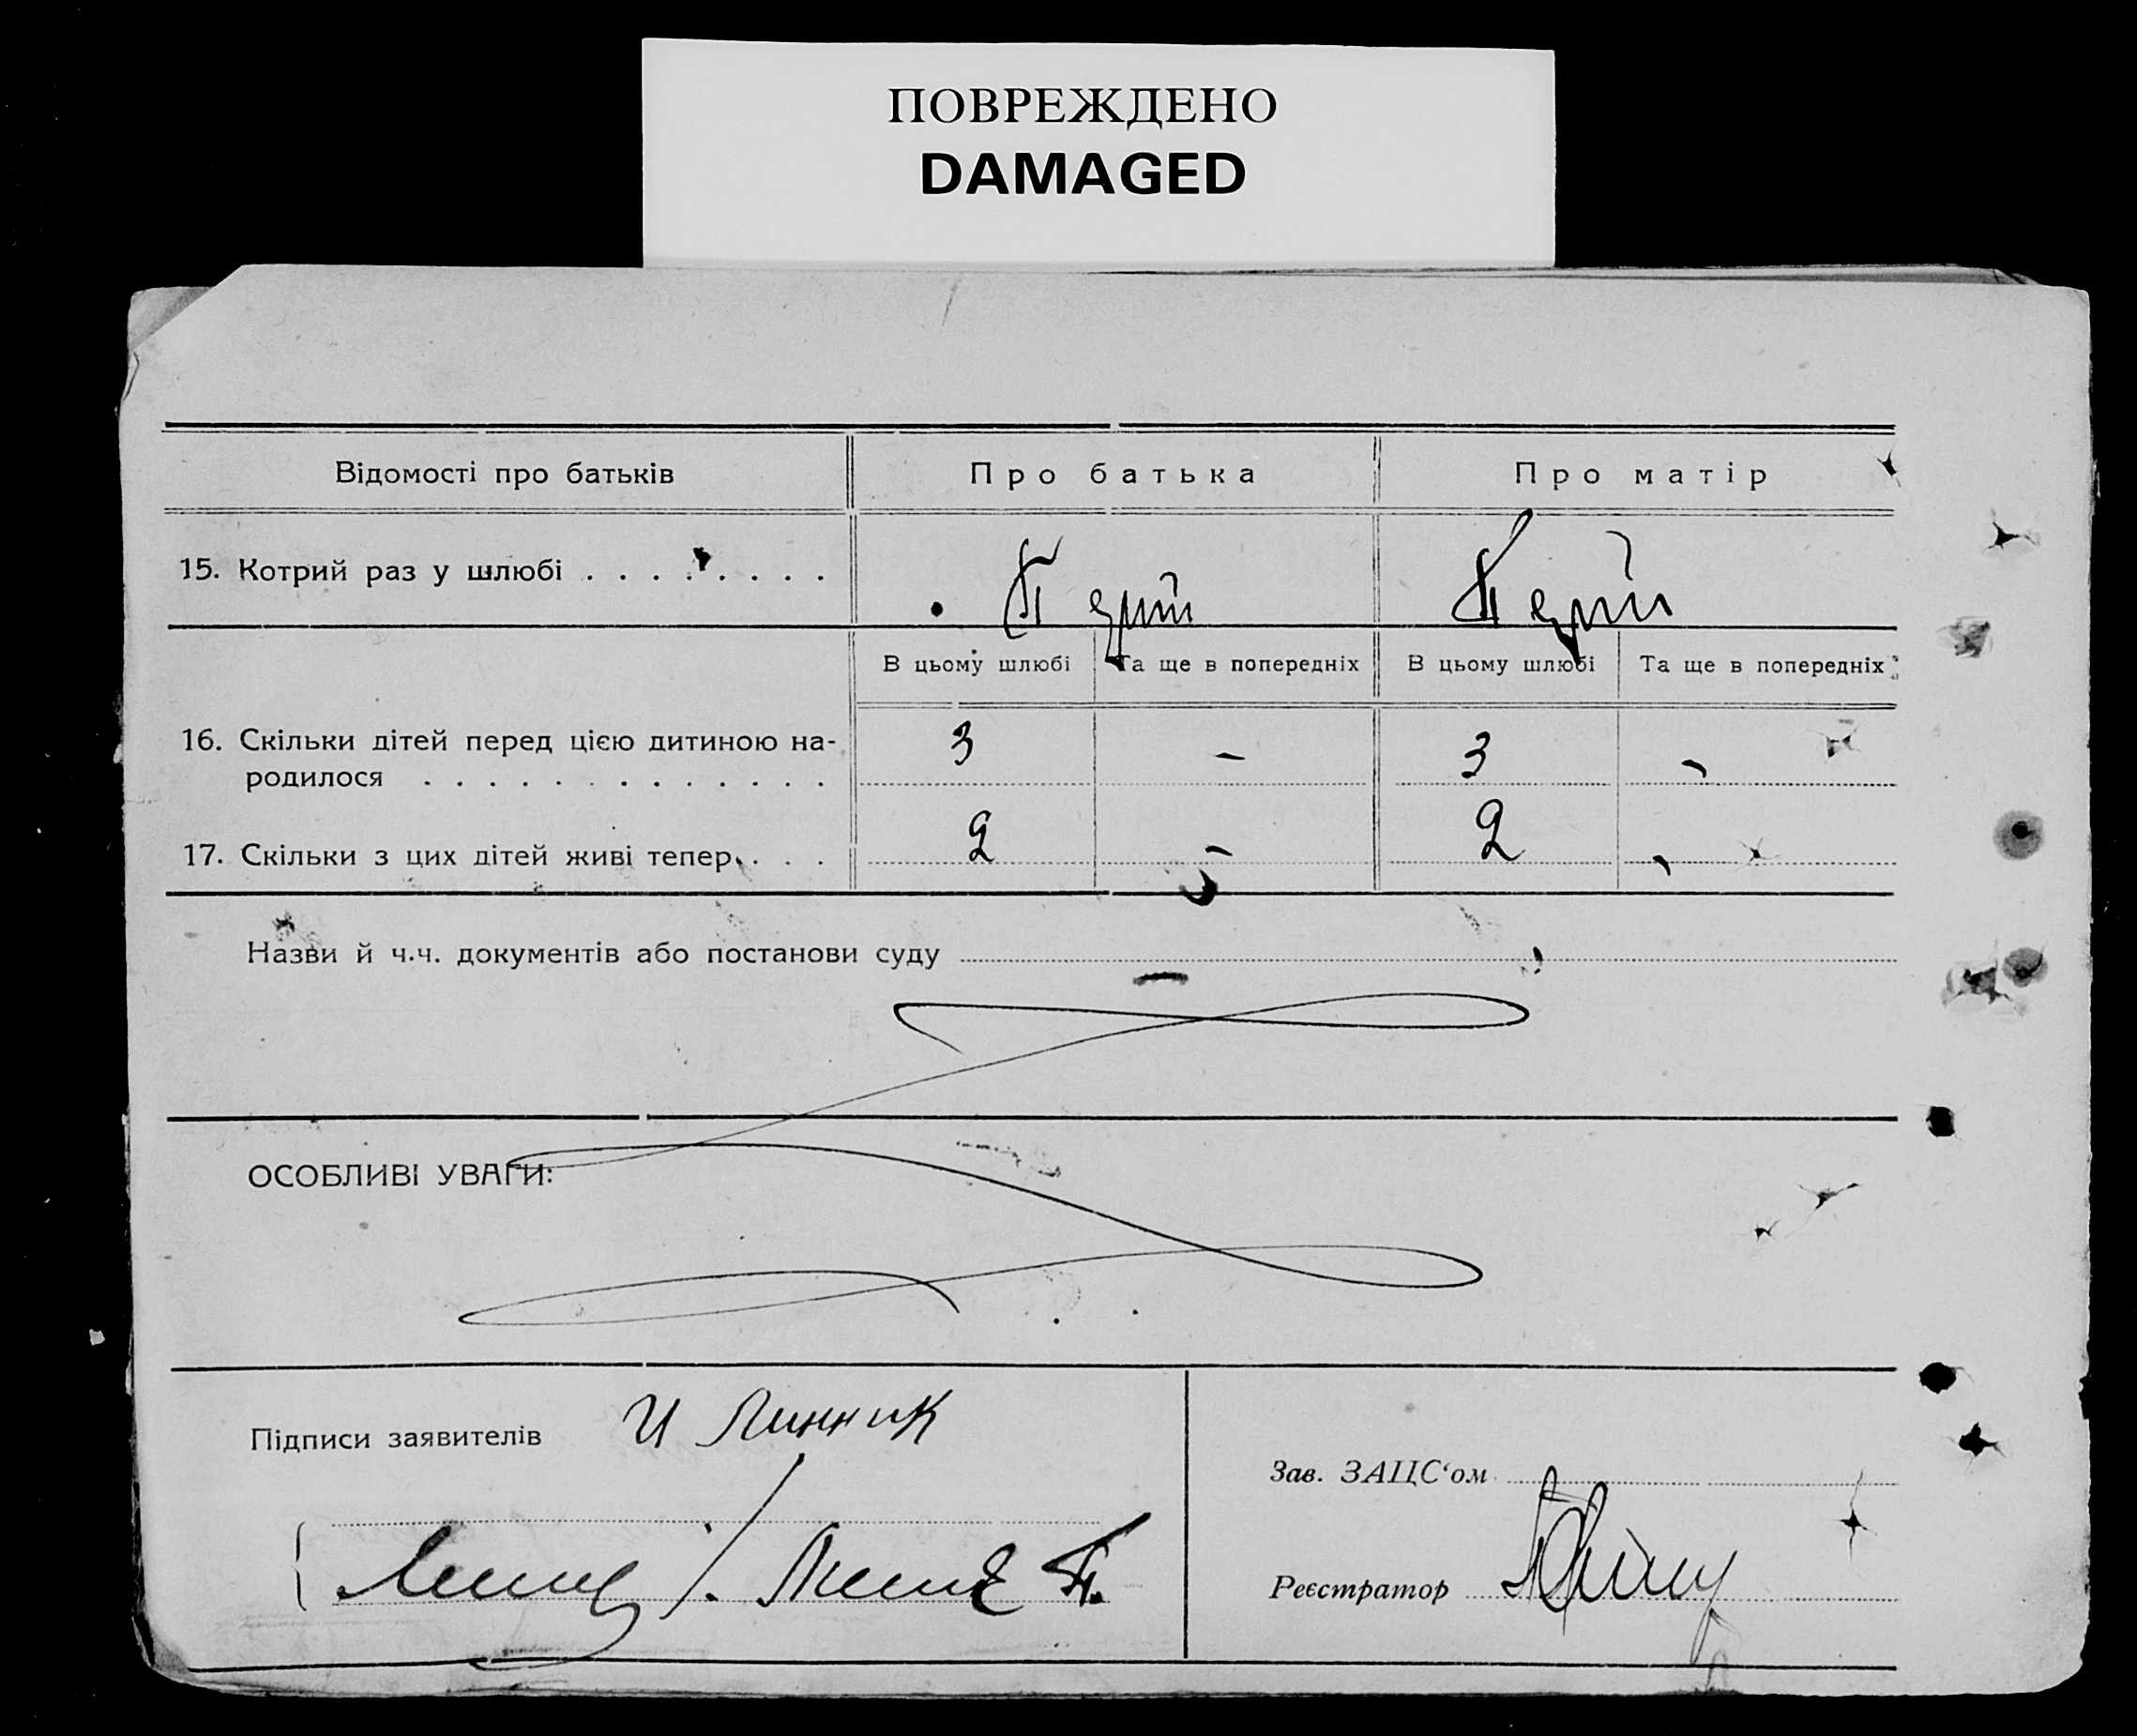 ПОВРЕЖДЕНО
DAMAGED
Відомості про батьків Про батька Про матір
15. Котрий раз у шлюбі . . . . . . . .
В цьому шлюбі Та ще в попередніх В цьому шлюбі Та ще в попередніх
16. Скільки дітей перед цією дитиною на-
родилося . . . . . . . . . . . . . 3 - 3 -
17. Скільки з цих дітей живі тепер . . . 2 - 2 -
Назви й ч.ч. документів або постанови суду -
ОСОБЛИВІ УВАГИ:
Підписи заявителів И Линник
Зав. ЗАЦС‘ом
Реєстратор